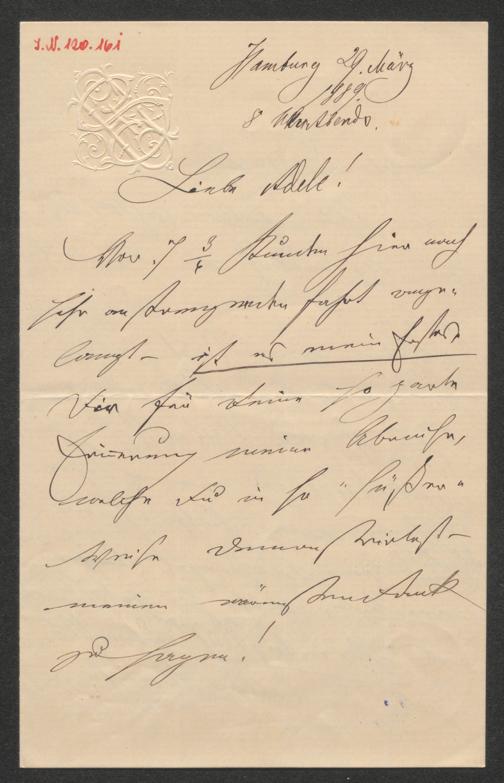 I.N. 120.161
Hamburg 29. März
1889.
8 Uhr Abends.
Liebe Adele!
Vor 7 3/4 Stunden hier nach
sehr anstrengender Fahrt ange-
langt – ist es mein Erstes,
Dir für Deine so zarte
Erinnerung meiner Abreise,
welche Du in so "süßer"
Weise demonstrirtest –
meinen wärmsten Dank
zu sagen!